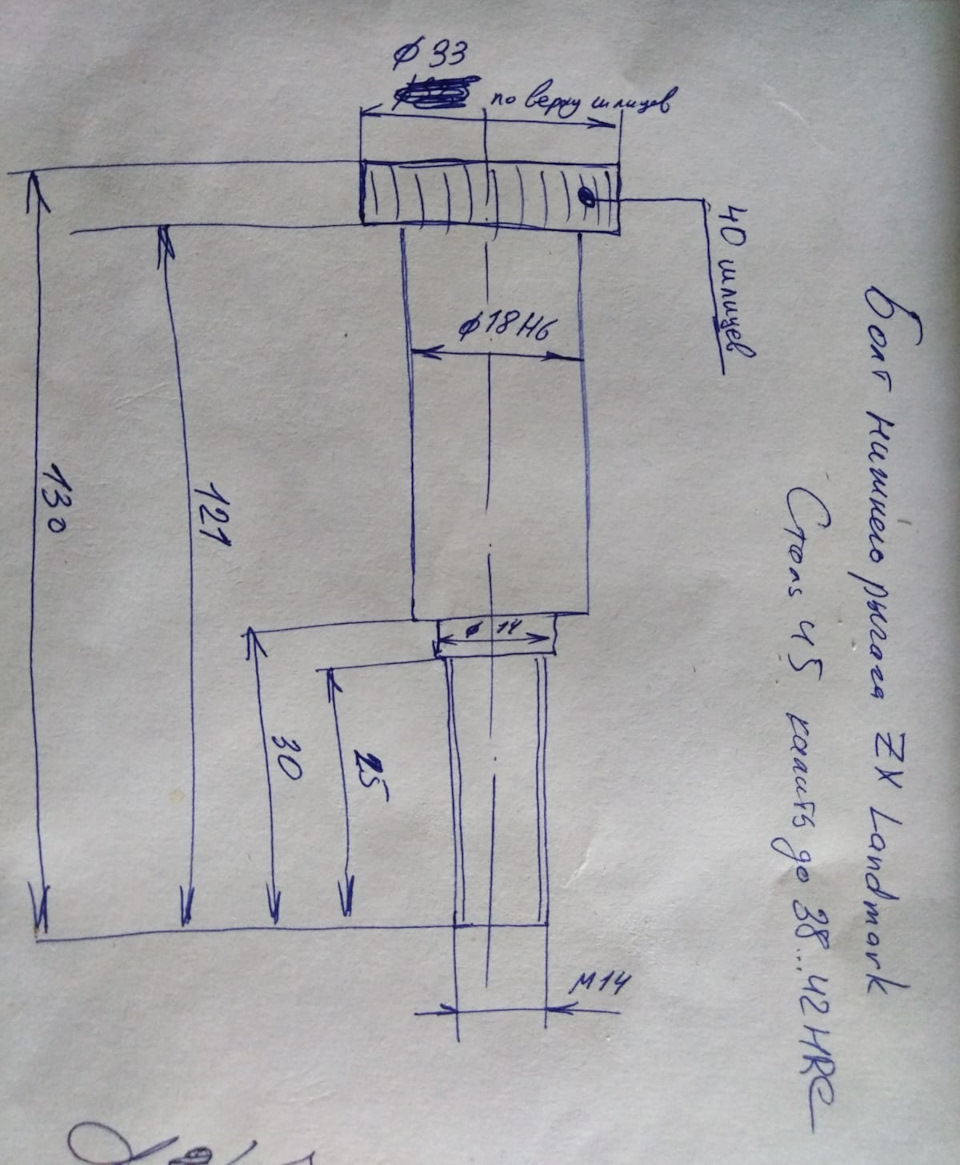 Болт нижнего рычага ZX Landmark
Сталь 45 калить до 38...42 HRC
ϕ 33
по верху шлицев
40 шлицев
ϕ18 H6
ϕ 14
130
121
30
25
M14